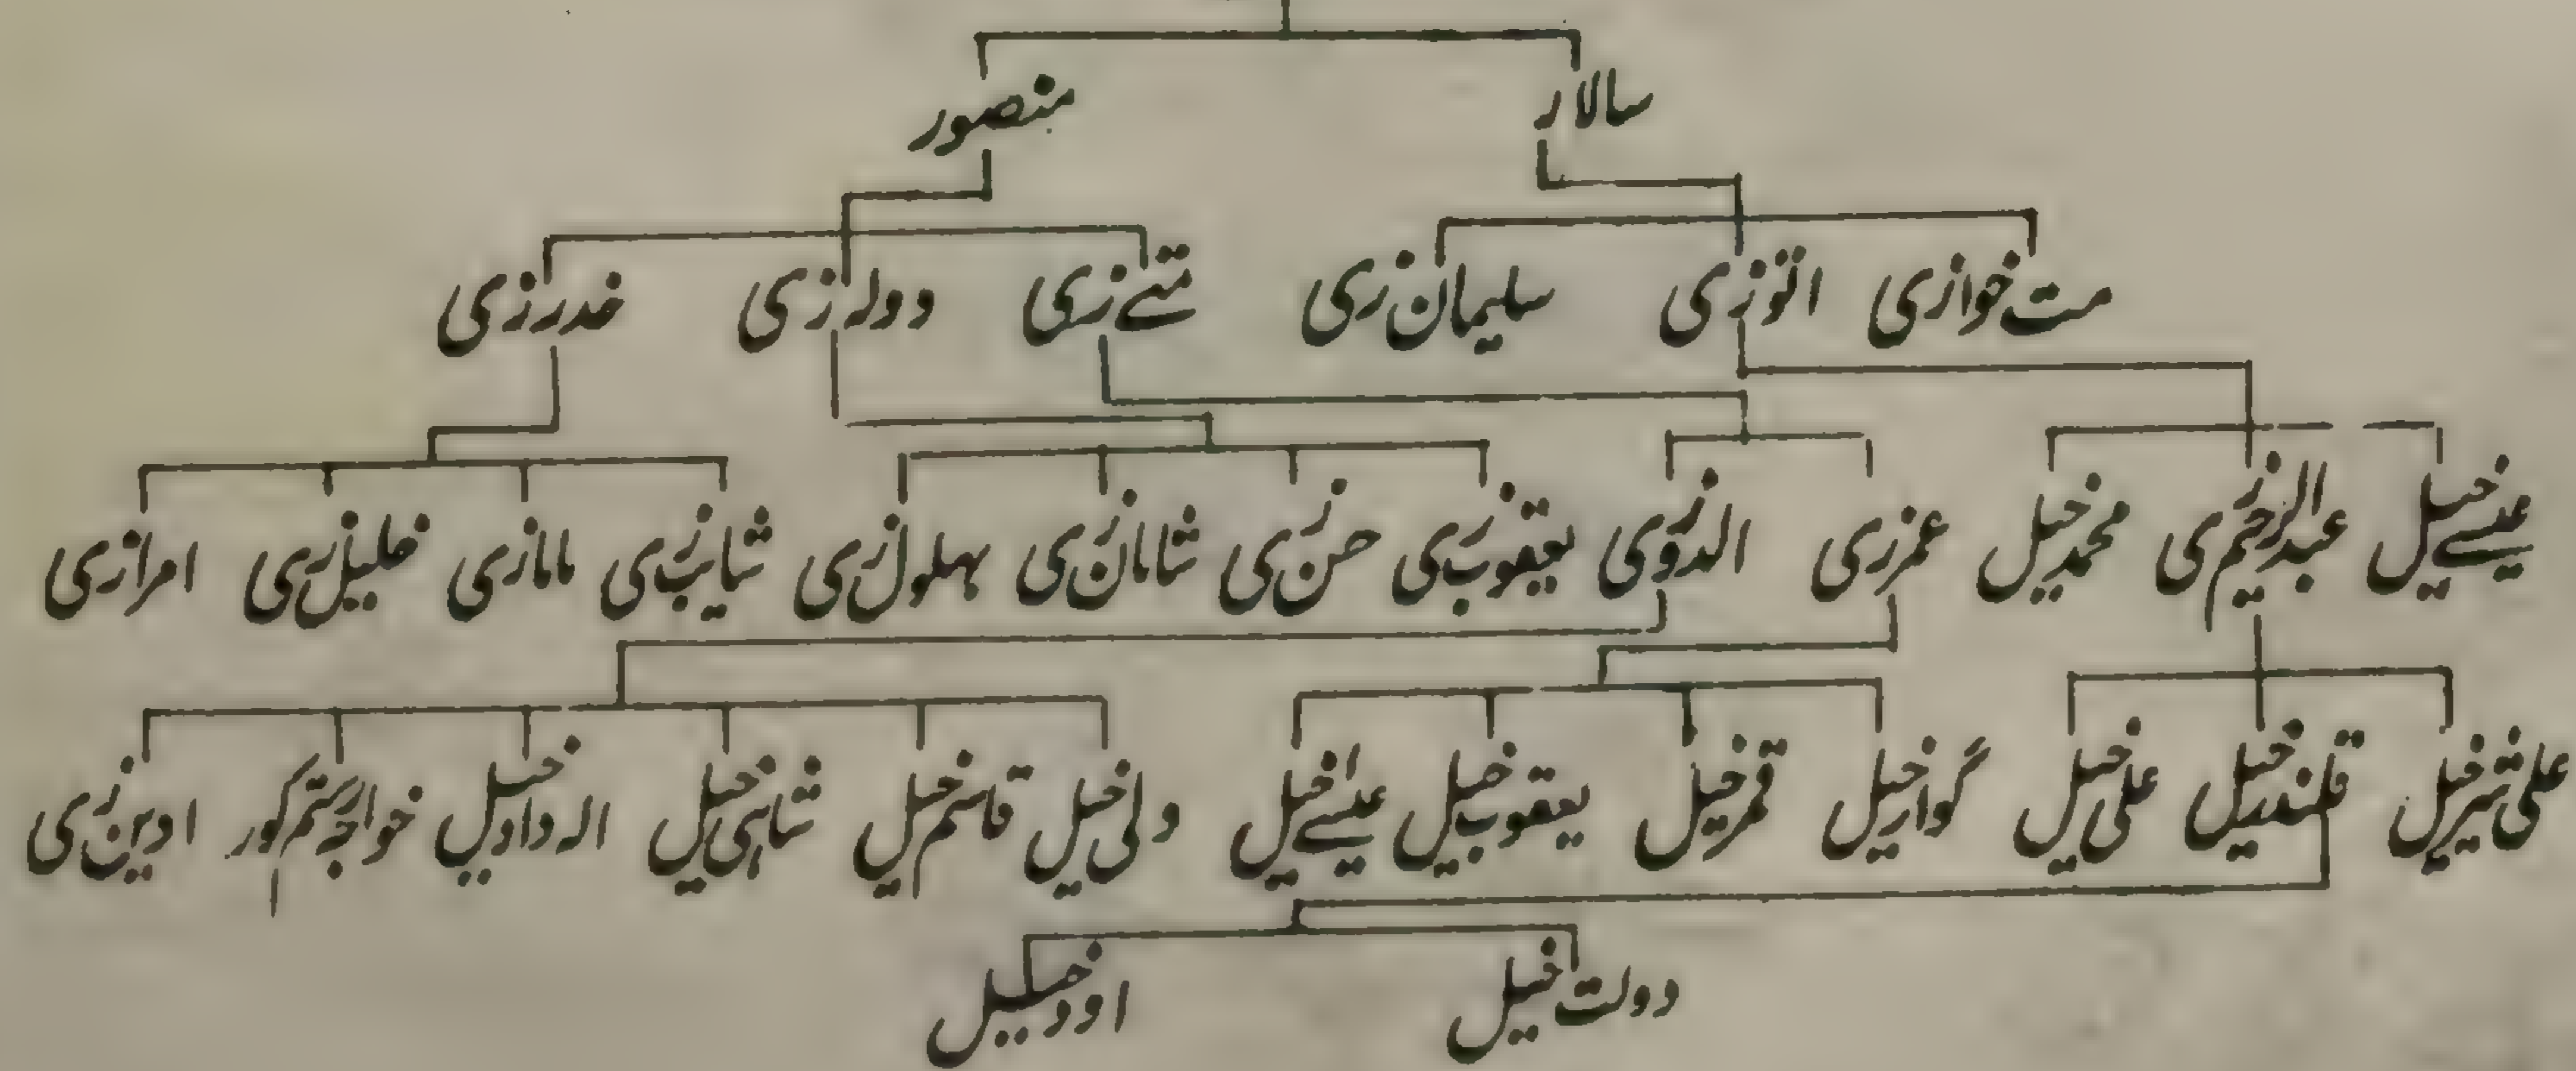 سالار منصور
مت خوازی اتوزی سلیمان زی متے زی دولہ زی خدرزی
عیسے خیل عبدالرحیم زی محمد خیل عمرزی الدوزی یعقوب زی حسن زی شامان زی بہلول زی شایب زی مامازی خلیل زی امرازی
علی شیر خیل قلندر خیل علی خیل گوار خیل قمر خیل یعقوب خیل عیسے خیل ولی خیل قاسم خیل شاہی خیل الہ داد خیل خواجہ رستم کور ادین زی
دولت خیل اودخیل